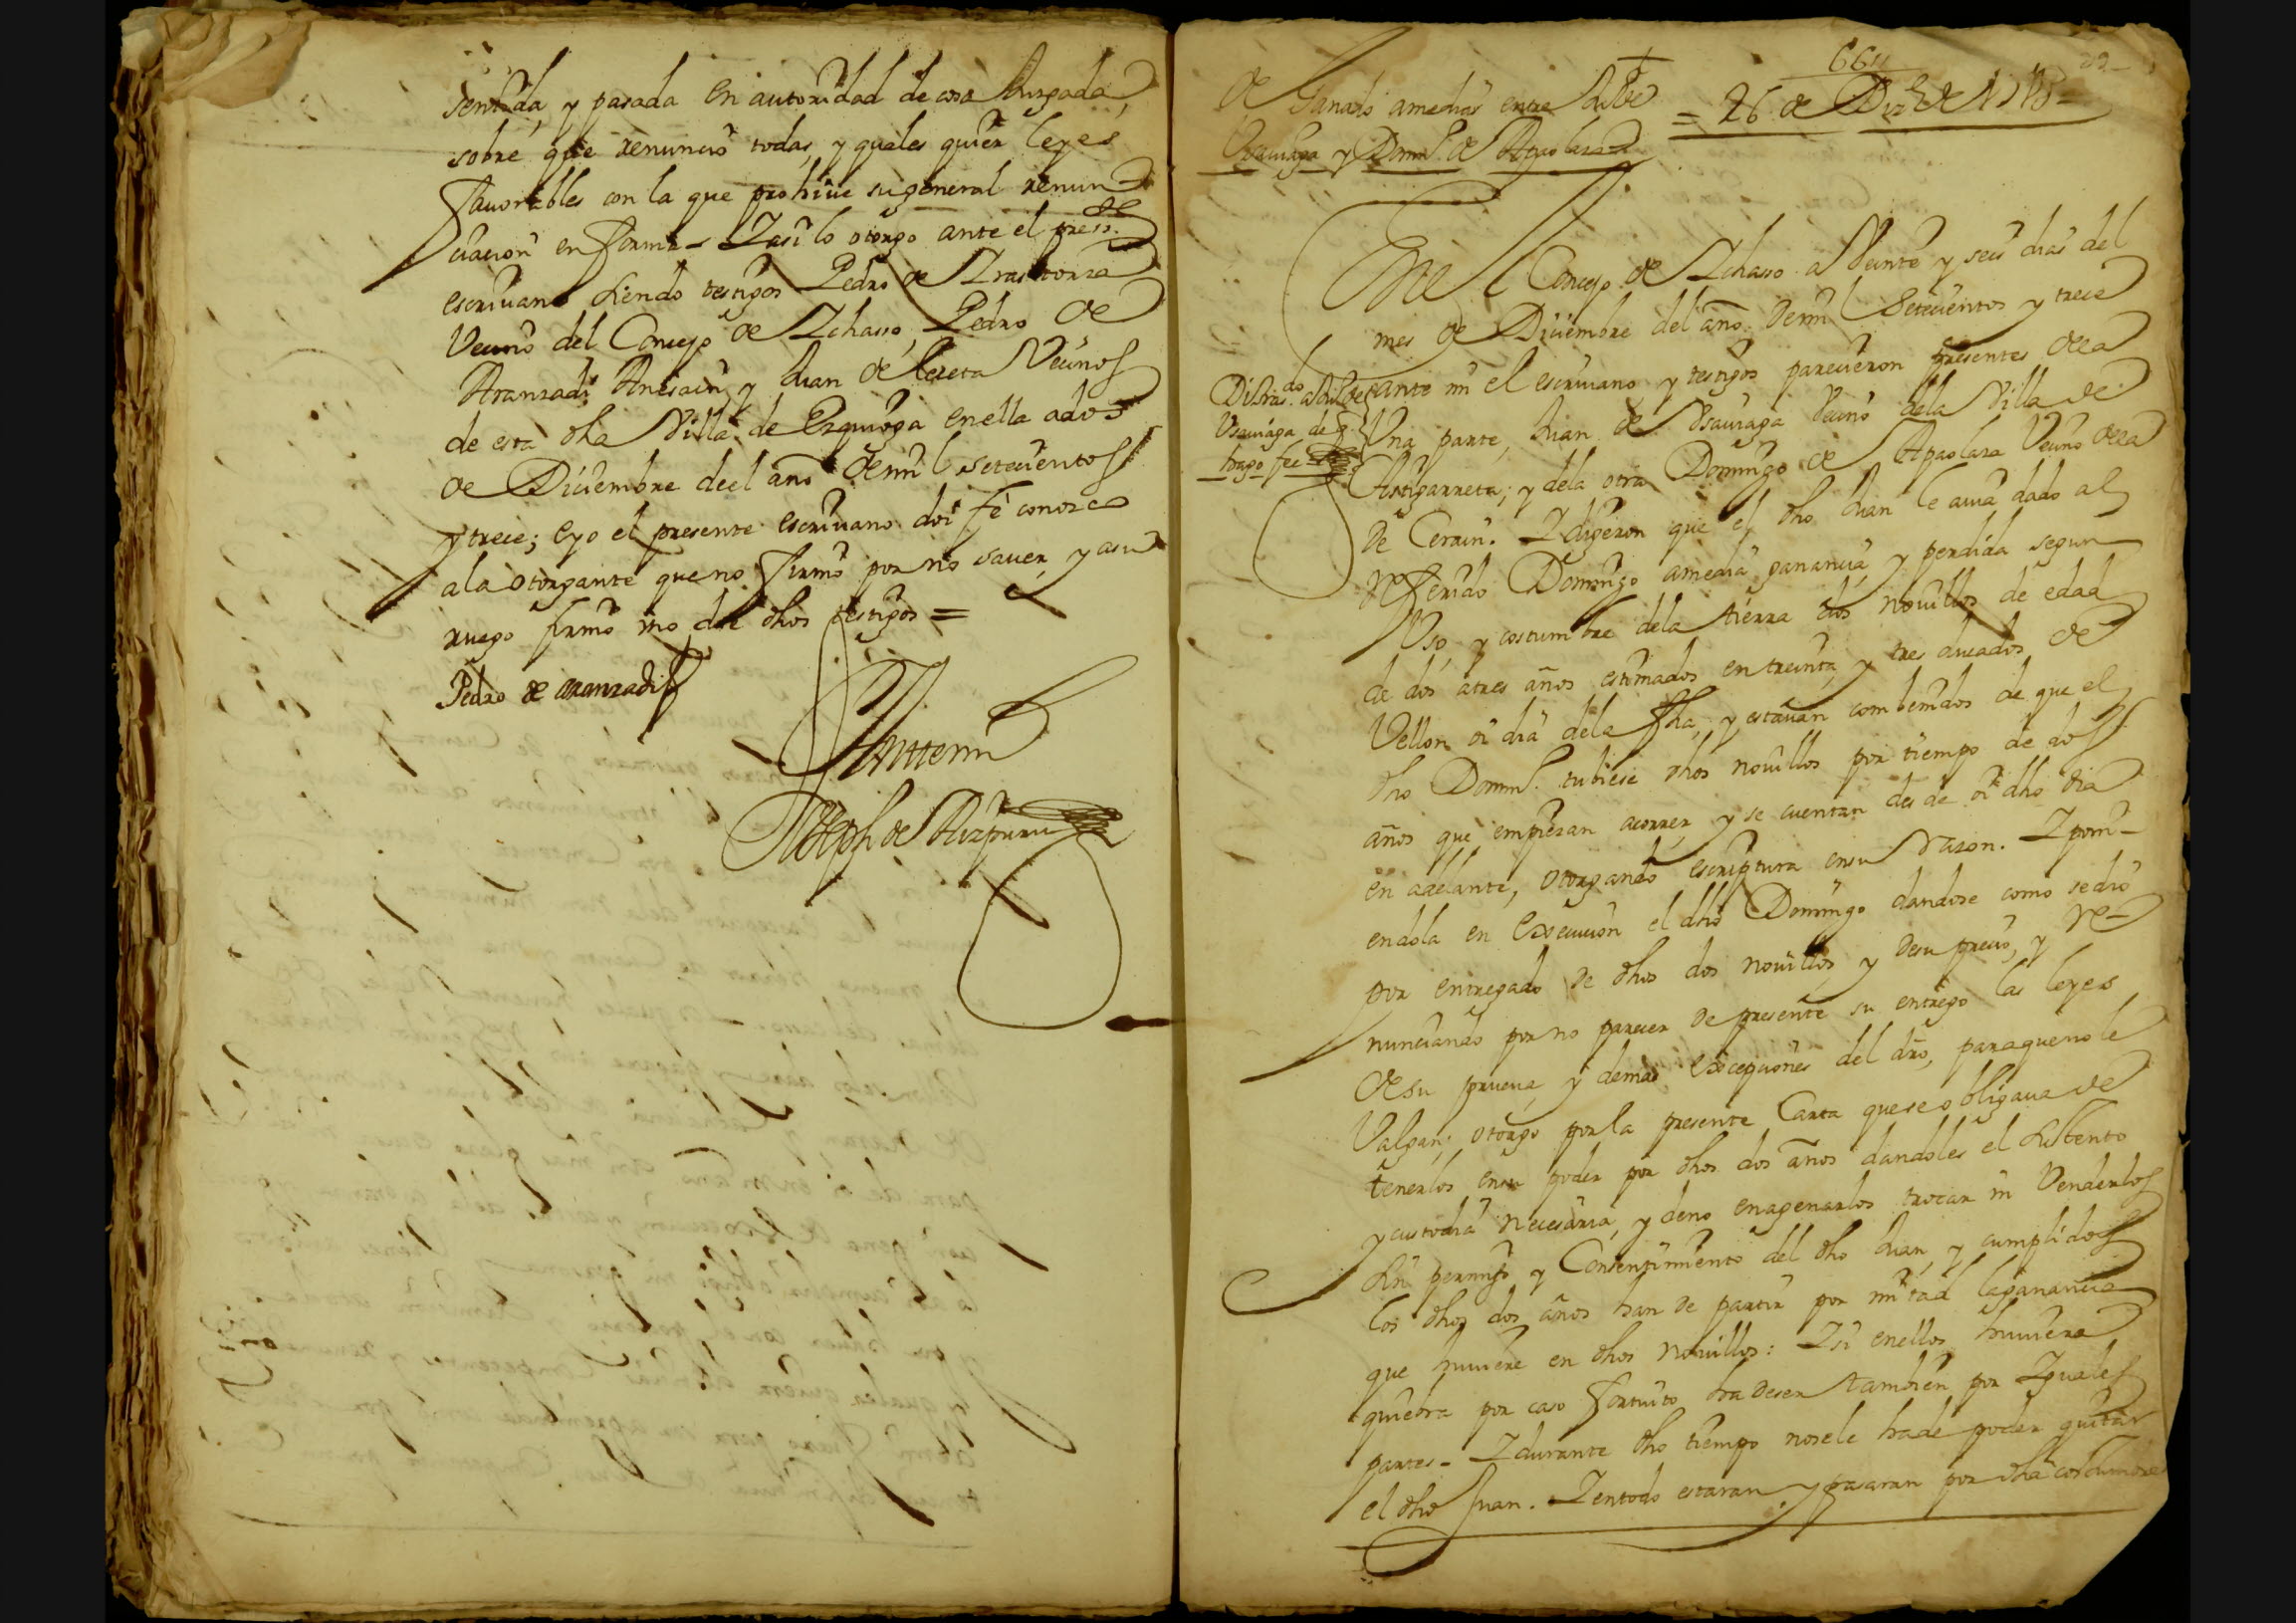 sentida, y pasada en autoridad de cosa Juzgada,
sobre que renuncio todas, y quales quier leyes
fauorables con la que prohiue su general renun-
ciacion en forma - Y asi lo otorgo ante el press.te
escriuano siendo testigos Pedro de Yrastorza
Vecino del Concejo de Ychasso, Pedro de
Aranzadi Anesain, y Juan de Vecinos
de esta dha Villa de Ezquioga en ella a dos
de Diciembre de el año de mil setecientos
y trece; e yo el presente escriuano doi fe conozco
a la otorgante que no firmo por no sauer, y a su
ruego firmo uno de dhos testigos =
Pedro de aranzadi
Ante mi
Joseph de Aizpuru
664
de Ganado a medias entre Ju.º de
Vsauiaga y Dom.º de Apaolaza
= 26 de Diz.e de 1713 =
En el Concejo de Ychasso a Veinte y seis dias del
mes de Diciembre del año de mil Setecientos y trece
ante mi el escriuano y testigos parecieron presentes de la
Vna parte, Juan de Vsauiaga Vecino de la Villa de
Astigarreta; y de la otra Domingo de Apaolaza Vecino de la
de Cerain. Y digeron que el dho Juan le auia dado al
referido Domingo a media ganancia, y perdida segun
Vso, y costumbre de la tierra dos nouillos de edad
de dos a tres años estimados en treinta, y tres ducados de
Vellon oi dia de la fha, y estauan combenidos de que el
dho Dom.º tubiese dhos nouillos por tiempo de dos
años que empiezan a correr, y se cuentan desde oi dho dia
en adelante, otorgando escriptura en su razon. Y poni-
endola en execucion el dho Domingo dandose como se dio
por entregado de dhos dos nouillos, y de su precio, y re-
nunciando por no parecer de presente su entrego las leyes
de su prueua, y demas excepciones del dro, para que no le
Valgan; otorgo por la presente Carta que se obligaua de
tenerlos en su poder por dhos dos años dandoles el sustento
y custodia necesaria, y de no enagenarlos trocar ni Venderlos
sin permiso y Consentimiento del dho Juan, y cumplidos
los dhos dos años han de partir por mitad la ganancia
que huuiere en dhos nouillos: Y si en ellos huuiera
quiebra por caso fortuito ha de ser tambien por Yguales
partes - Y durante dho tiempo no se le ha de poder quitar
el dho Juan. Y en todo estaran y pasaran por dha costumbre
Vsauiaga de q.
hago fee